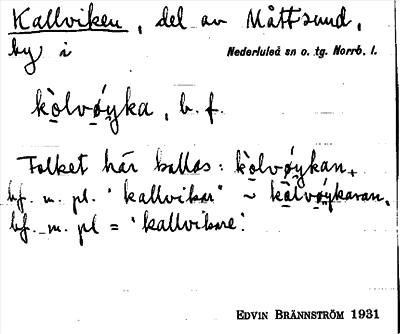 Kallviken, del av Måttsund,
by i Nederluleå sn o. tg. Norrb. l.
kòlvǿyka, b. f.
Folket här kallas: kòlvǿykan,
bf. m. pl. "kallvikar" ~ kòlvǿykaran,
bf. m. pl = "kallvikare".
EDVIN BRÄNNSTRÖM 1931